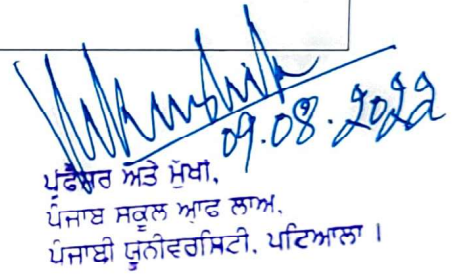 09.08.2022
ਪ੍ਰੋਫੈਸਰ ਅਤੇ ਮੁੱਖੀ,
ਪੰਜਾਬ ਸਕੂਲ ਆਫ ਲਾਅ,
ਪੰਜਾਬੀ ਯੂਨੀਵਰਸਿਟੀ, ਪਟਿਆਲਾ ।